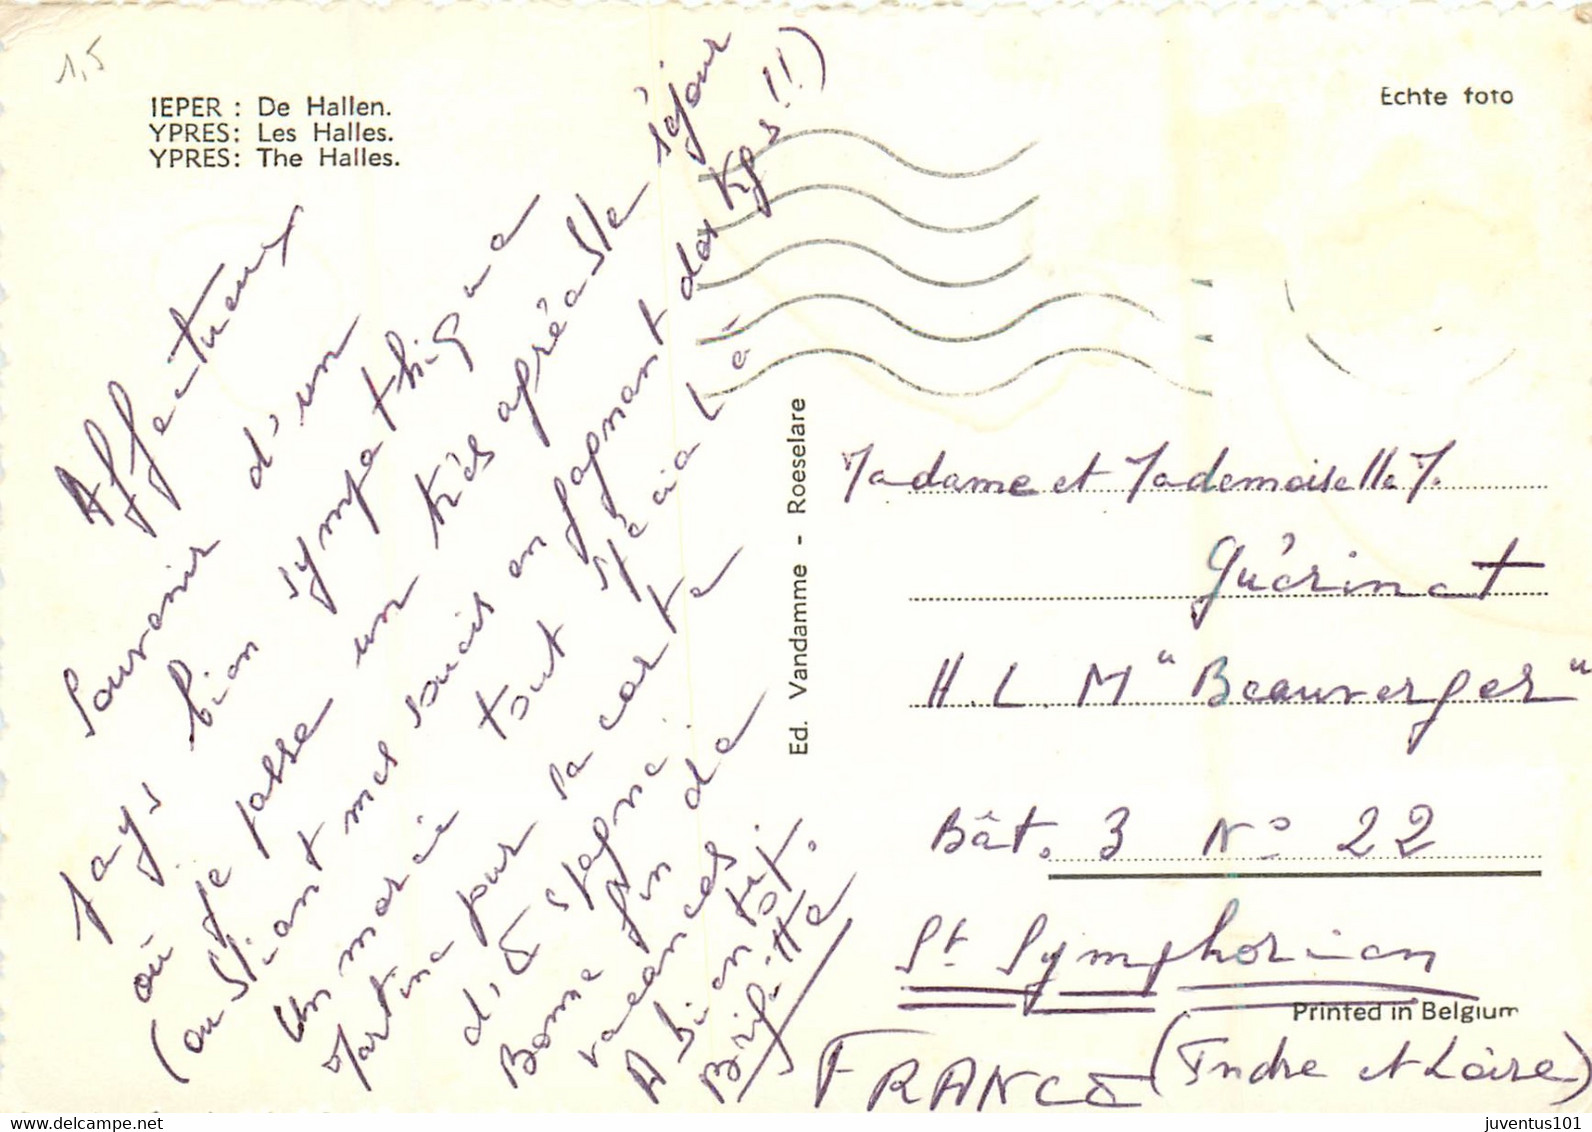 1,5
IEPER : De Hallen.
YPRES: Les Halles.
YPRES: The Halles.
Echte foto
Affectueux
souvenir d'un
pays bien sympathique
où je passe un très agréable séjour
(oubliant mes soucis en gagnant des Kgs!!)
Un merci tout spécial à
Martine pour sa carte
d'Espagne.
Bonne fin de
vacances
A bientôt.
Brigitte
Ed. Vandamme - Roeselare
Madame et Mademoiselle M.
Guérinet
H.L.M "Beauverger"
Bât. 3 N° 22
St Symphorien
Printed in Belgium
FRANCE (Indre et Loire)
juventus101